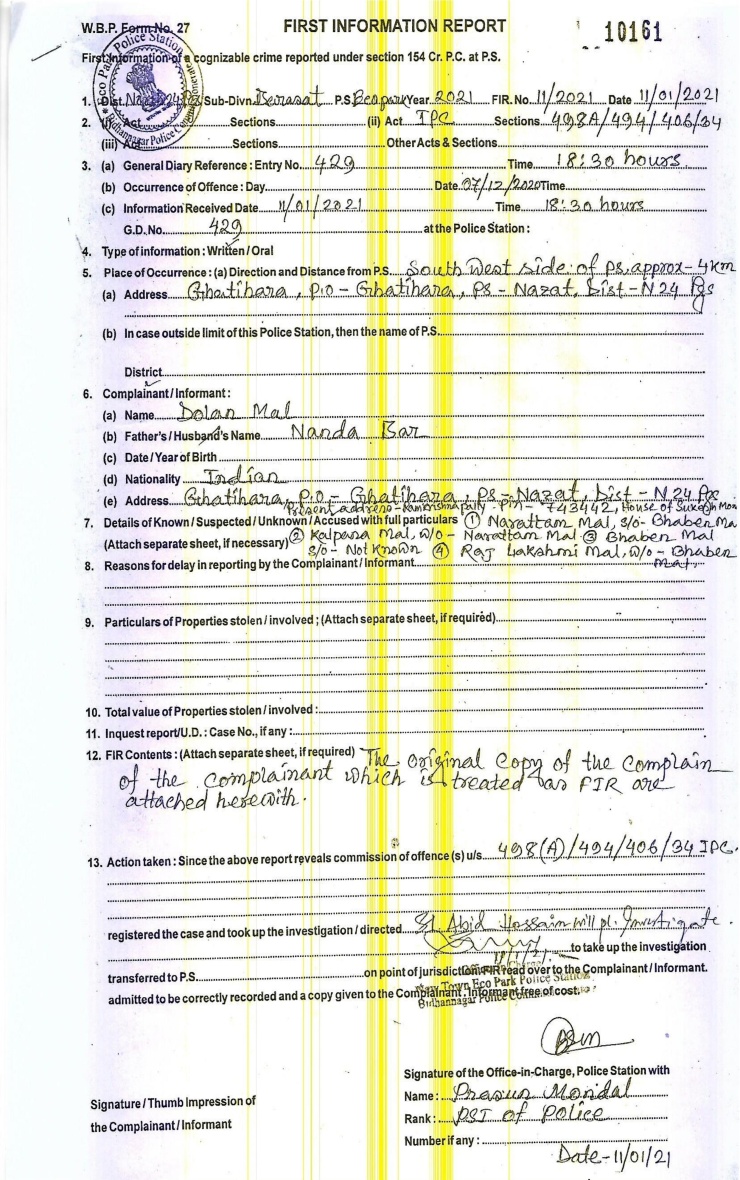 W.B.P. Form No. 27
FIRST INFORMATION REPORT
10161
First Information of a cognizable crime reported under section 154 Cr. P.C. at P.S.
1. Dist. Sub-Divn. Barasat P.S. Ecopark Year 2021 FIR. No. 11/2021 Date 11/01/2021
2. (i) Act Sections (ii) Act IPC Sections 498A/494/406/34
(iii) Act Sections Other Acts & Sections
3. (a) General Diary Reference : Entry No. 429 Time 18:30 hours
(b) Occurrence of Offence : Day Date 07/12/2020 Time
(c) Information Received Date 11/01/2021 Time 18:30 hours
G.D. No. 429 at the Police Station :
4. Type of information : Written / Oral
5. Place of Occurrence : (a) Direction and Distance from P.S. South West side of PS. approx - 4 km
(a) Address Ghatihara, P.O - Ghatihara, PS - Nazat, Dist - N 24 Pgs
(b) In case outside limit of this Police Station, then the name of P.S.
District
6. Complainant / Informant :
(a) Name Dolan Mal
(b) Father's / Husband's Name Nanda Bar
(c) Date / Year of Birth
(d) Nationality Indian
(e) Address Ghatihara, P.O - Ghatihara, PS - Nazat, Dist - N 24 Pgs
Present address - Ramkrishna Pally - PIN - 743442, House of
7. Details of Known / Suspected / Unknown / Accused with full particulars ① Narattam Mal, S/o - Bhaben Ma
(Attach separate sheet, if necessary) ② Kalpana Mal, W/o - Narattam Mal ③ Bhaben Mal
S/o - Not Known ④ Raj Lakshmi Mal, W/o - Bhaben
Mal.
8. Reasons for delay in reporting by the Complainant / Informant
9. Particulars of Properties stolen / involved ; (Attach separate sheet, if required)
10. Total value of Properties stolen / involved :
11. Inquest report/U.D. : Case No., if any :
12. FIR Contents : (Attach separate sheet, if required) The original Copy of the Complain
of the complainant which is treated as FIR are
attached herewith.
13. Action taken : Since the above report reveals commission of offence (s) u/s. 498(A)/494/406/34 IPC.
registered the case and took up the investigation / directed SI Abid Hossain will pl. Investigate.
11/1/21
to take up the investigation
transferred to P.S. on point of jurisdiction FIR read over to the Complainant / Informant.
New Town Eco Park Police Station
admitted to be correctly recorded and a copy given to the Complainant. Informant free of cost.
Bidhannagar Police
Signature of the Office-in-Charge, Police Station with
Name : Prasun Mondal
Signature / Thumb Impression of
Rank : PSI of Police
the Complainant / Informant
Number if any :
Date - 11/01/21